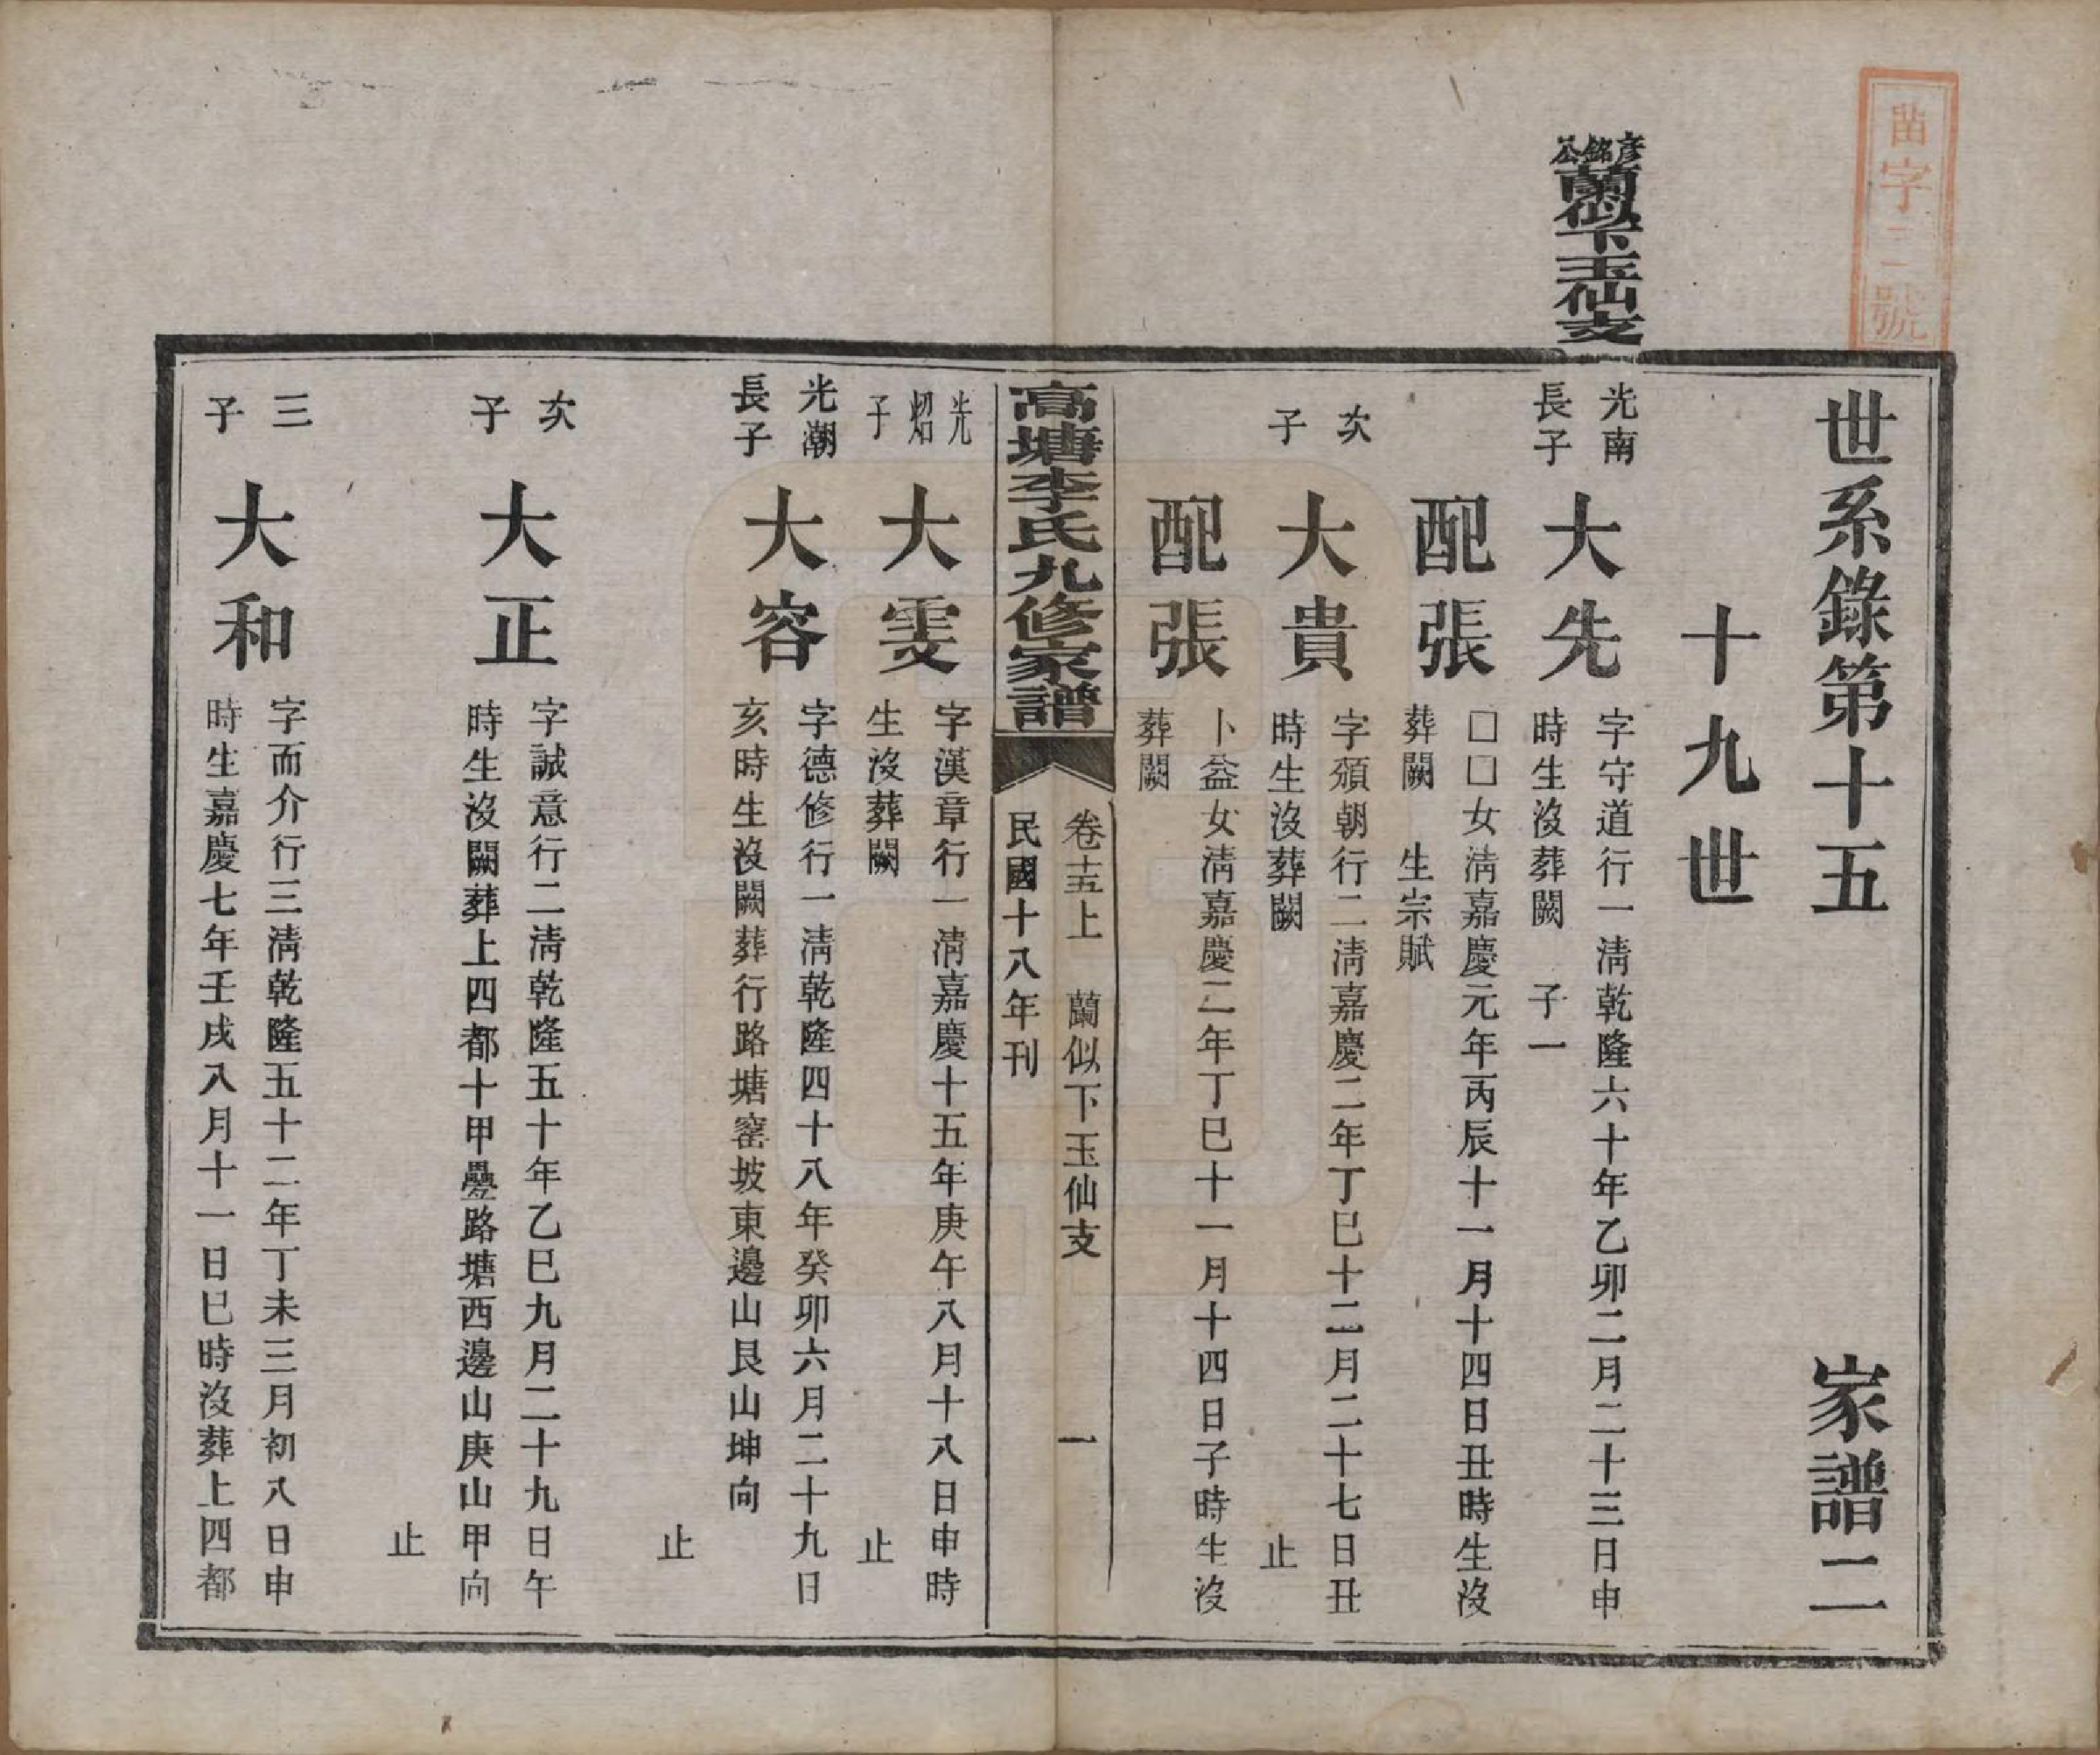 苗字二號
彥銘公
蘭似下玉仙支
世系錄第十五　家譜二
十九世
光南
長子
大先
字守道行一清乾隆六十年乙卯二月二十三日申
時生沒葬闕　子一
配張
□□女清嘉慶元年丙辰十一月十四日丑時生沒
葬闕　生宗賦
次
子
大貴
字頒朝行二清嘉慶二年丁巳十二月二十七日丑
時生沒葬闕　止
配張
卜益女清嘉慶二年丁巳十一月十四日子時生沒
葬闕
高塘李氏九修家譜
卷十五上　蘭似下玉仙支　一
民國十八年刊
光
炤
子
大雯
字漢章行一清嘉慶十五年庚午八月十八日申時
生沒葬闕　止
光潮
長子
大容
字德修行一清乾隆四十八年癸卯六月二十九日
亥時生沒闕葬行路塘窰坡東邊山艮山坤向
止
次
子
大正
字誠意行二清乾隆五十年乙巳九月二十九日午
時生沒闕葬上四都十甲疊路塘西邊山庚山甲向
止
三
子
大和
字而介行三清乾隆五十二年丁未三月初八日申
時生嘉慶七年壬戌八月十一日巳時沒葬上四都